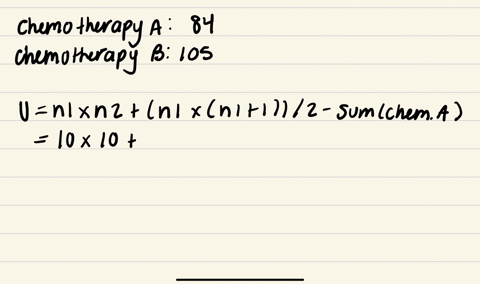 Chemotherapy A: 84
Chemotherapy B: 105
U = n1 x n2 + (n1 x (n1+1)) / 2 - Sum(Chem. A)
= 10 x 10 +